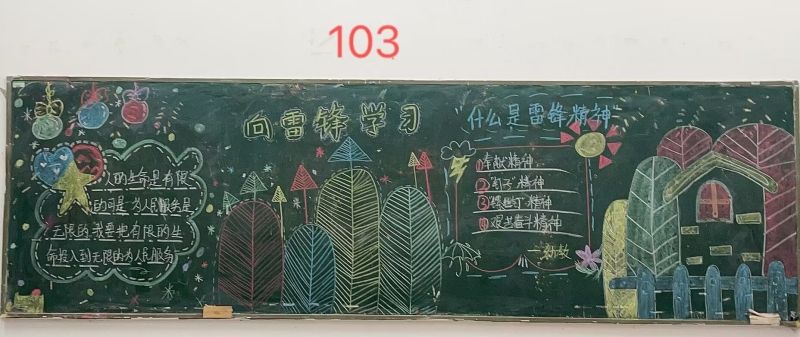 103
向雷锋学习
人的生命是有限
的可是为人民服务是
无限的我要把有限的生
命投入到无限的为人民服务
"什么是雷锋精神"
①奉献精神
②"钉子"精神
③螺丝钉精神
④艰苦奋斗精神